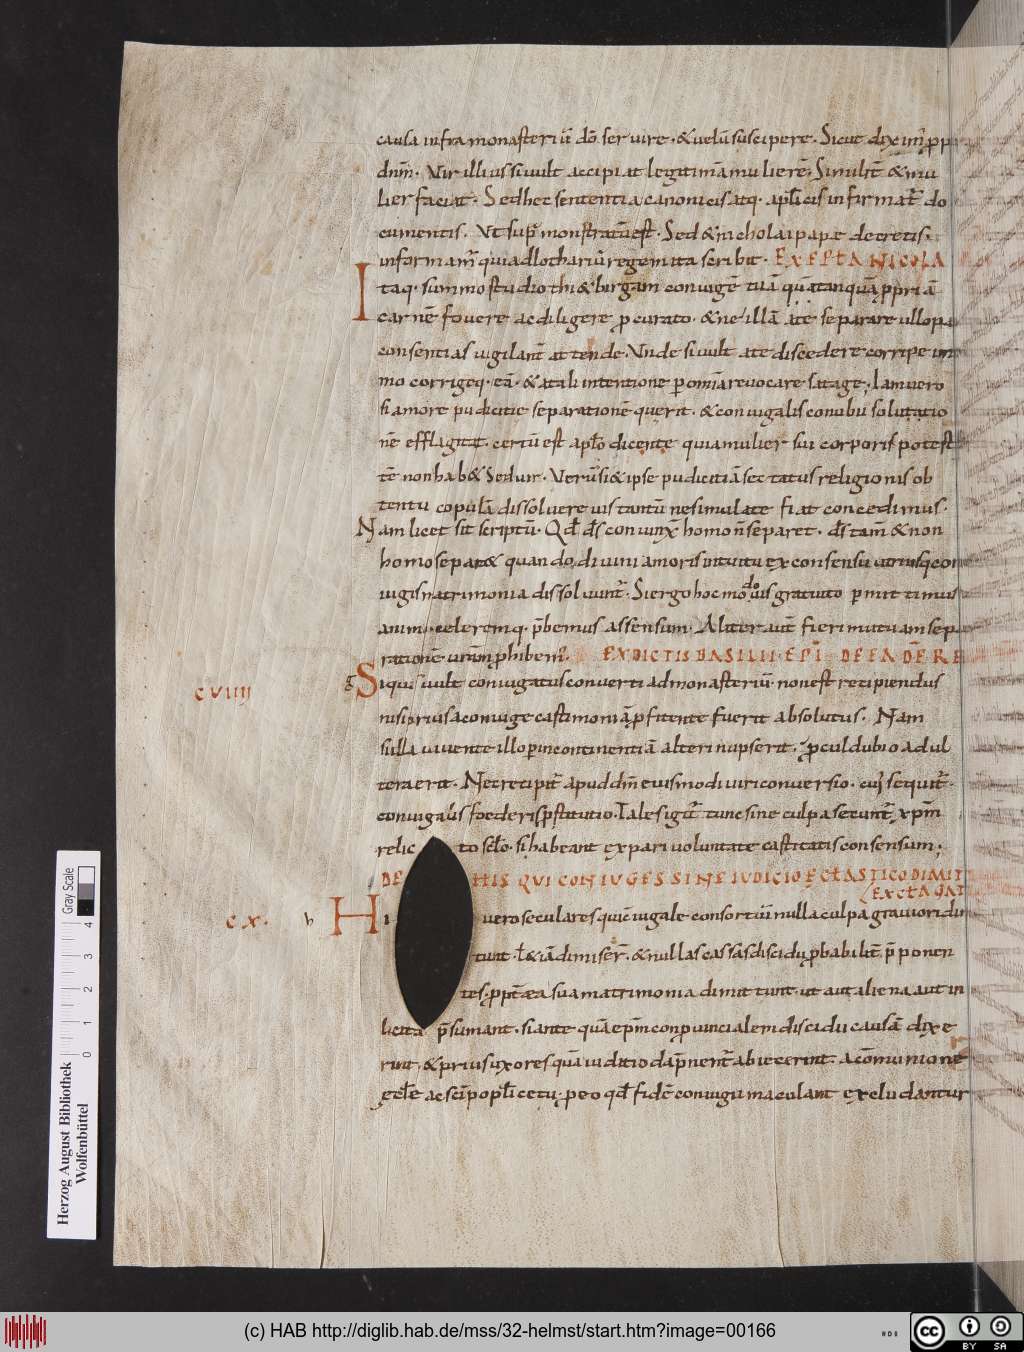 causa infra monasteriū dō servire · & velū suscipere · Sicut dixim᷒
dnm̄ · Vir illius si vult accipiat legitimā mulierē · Similit̄ & mu
lier faciat · Sed hec sententia canonicis atq· apl̄icis infirmat᷒ do
cumentis · Ut sup᷒ monstratū est · Sed & nicholai pape decretis ·
informam᷒ quia ad lothariū regem ita scribit · EXCEPTA NICOLA
Itaq· summo studio thi&birgam coniugē tuā quā tanquā ꝓpriā
carnē fovere ac diligere ꝓcurato · & ne illā a te separare ullo pa
consentias vigilant̄ attende · Unde si vult a te discedere corripe im
mo corrigeq· eā · & a tali intentione p omīa revocare satage · Iam vero
si amore pudicitie separationē querit · & coniugalis conubii soluta tio
nē efflagitat · certū est aplo dicente quia mulier sui corporis potesta
tē non hab& sed vir · Verū si & ipse pudicitiā sectatus religionis ob
tentu copulā dissolvere vis tantū ne simulate fiat concedimus ·
Nam licet sit scriptū · Qd ds coniunx̄ homo n̄ separet · ds tam̄ & non
homo separ& quando divini amoris intuitu ex consensu utriusq con
iugis matrimonia dissolvunt᷒ · Si ergo hoc modo vis gratuito pmittimus
animo celeremq· p̄bemus assensum · Aliter aut̄ fieri mutuam sepa
rationē utrimq· ꝓhibem᷒ · EX DICTIS BASILII · EPI · DE EADĒ RE
CVIIII g Siquis vult coniugatus converti ad monasteriū non est recipiendus
nisi prius a coniuge castimoniā ꝓfitente fuerit absolutus · Nam
si illa vivente illo p incontinentiā alteri nupserit · ꝓcul dubio adul
tera erit · Nec recipit᷒ apud dm̄ eiusmodi viri conversio · cui᷒ sequit᷒ ·
coniugalis foederis ꝓstitutio · Tales igit᷒ tunc sine culpa secunt᷒ xpm̄
relicto sclo · si habeant ex pari voluntate castitatis consensum ·
DE HIS QUI CONIUGES SINE IUDICIO ECCLASTICO DIMIT
EX CŁA GAT
CX · h Hi vero seculares qui c̄iugale consortiū nulla culpa graviori di
tunt · ł & iā dimiser᷒ · & nullas cassas discidii ꝓbabilit̄ p̄ponen
tes · ꝓpt̄ ea sua matrimonia dimittunt · ut aut aliena aut in
licita p̄sumant · si ante quā epm̄ conꝓvincialem discidii causā dixe
rint · & prius uxores quā iuditio dāpnent᷒ abiecerint · a cōmunione
eccłe ac scī popłi cetu · p eo qd fidē coniugii maculant excludantur
Herzog August Bibliothek
Wolfenbüttel
Gray Scale
0 1 2 3 4
(c) HAB http://diglib.hab.de/mss/32-helmst/start.htm?image=00166
cc BY SA